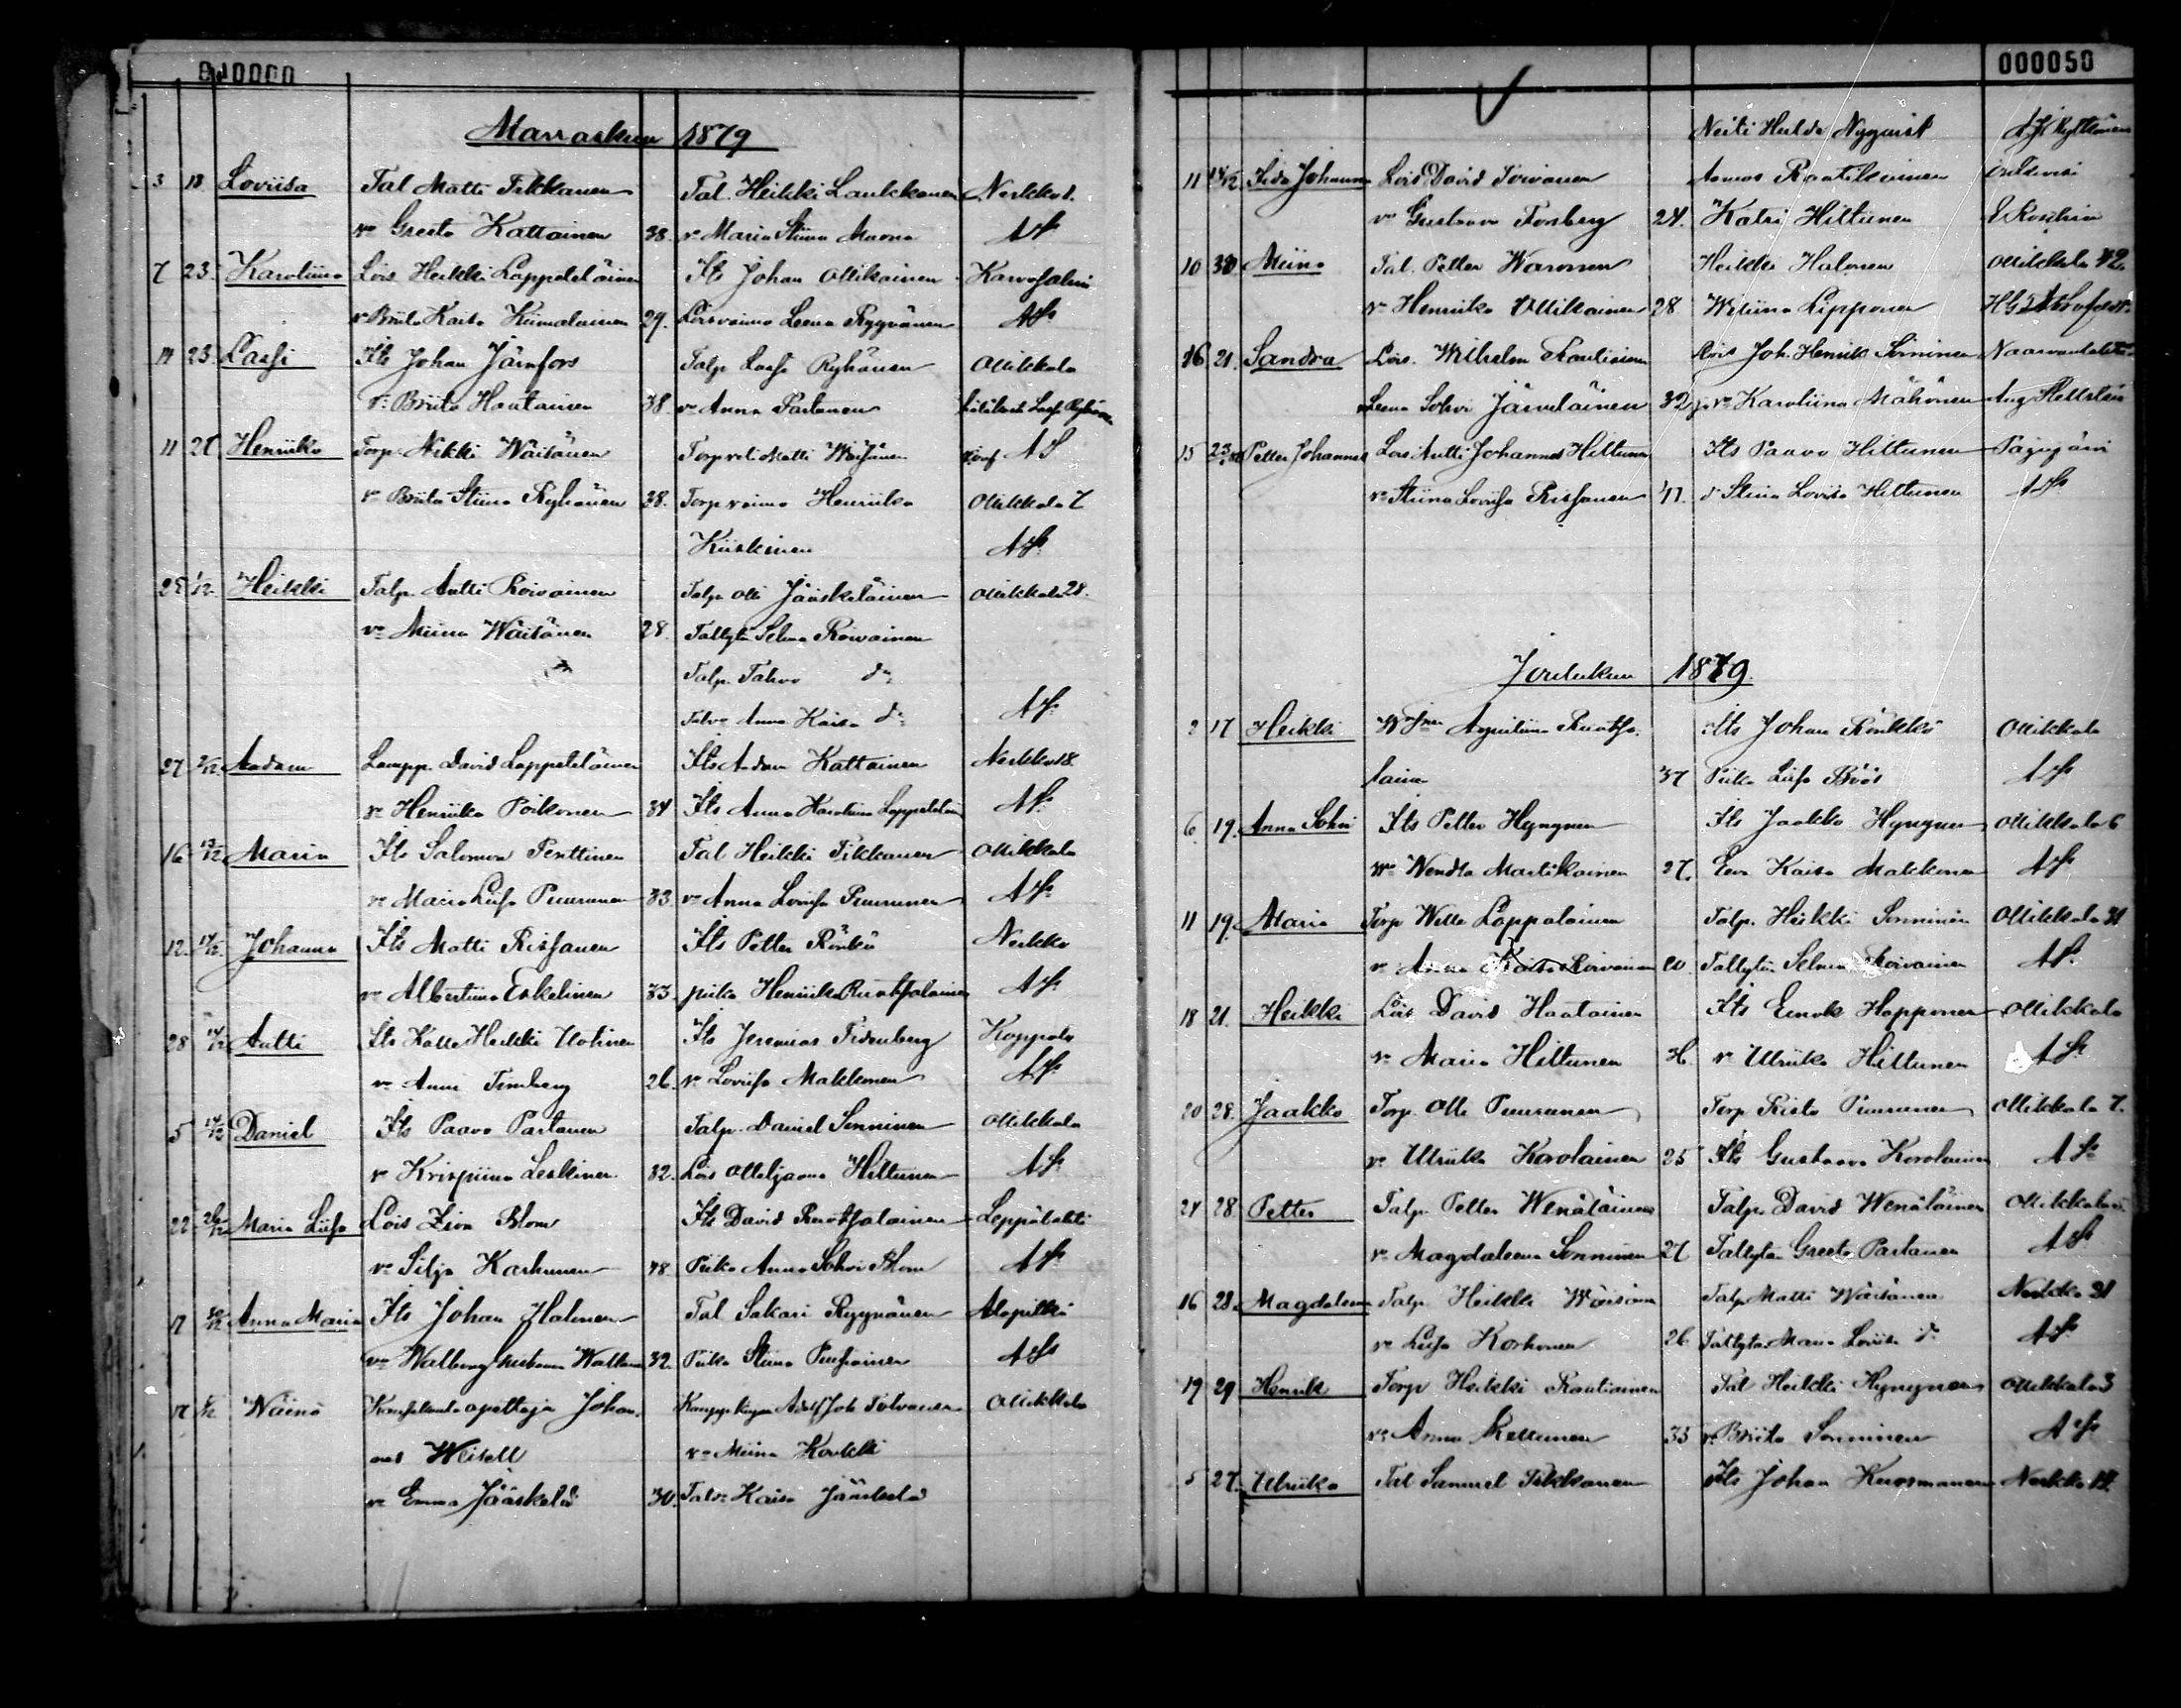 Marraskuu 1879
3 18 Loviisa Tal Matti Tikkanen Tal. Heikki Laukkanen Nerkko 1.
vo Greeta Kattainen 38. vo Maria Stiina AS
7 23. Karoliina Lois Heikki Lappeteläinen Its Johan Ollikainen Karvosalmi
vo Briita Kaisa Hiimalainen 29. Loisvaimo Leena Ryynänen AS
14 23. Lassi Its Johan Järnfors Talp Lassi Ryhänen Ollikkala
vo Briita Haatainen 38. vo Anna Partanen
11 27 Henriika Torp. Heikki Wäisänen Torp Matti Wäisänen AS
vo Briita Stiina Ryhänen 38. Torp vaimo Henriika Ollikkala 7
Kiiskinen AS
25 1/12 Heikki Talp. Antti Roivainen Talp Olli Jääskeläinen Ollikkala 28.
vo Miina Wäisänen 28. Taltytär Selma Roivainen
Talp. Tahvo do
Talvo Anna Kaisa do AS
27 7/12 Aadam Lampp. David Lappeteläinen Its Aadam Kattainen Nerkko 18
vo Henriika Poikonen 34 Its Anna Karoliina AS
16 Maria Its Salomon Penttinen Tal Heikki Tikkanen Ollikkala
vo Maria Liisa Puurunen 33. vo Anna Loviisa Puurunen AS
12. Johanna Its Matti Rissanen Its Petter Rönkö Nerkko
vo Albertiina Eskelinen 33. piika Henriika Ruotsalainen AS
28 14/12 Antti Its Kalle Heikki Utrinen Its Jeremias Tidenberg Koppola
vo Anni Timberg 26. vo Loviisa Makkonen AS
5 14/12 Daniel Its Paavo Partanen Talp. Daniel Sonninen Ollikkala
vo Krispiina Leskinen 32. Lois Ottiljaana Hiltunen AS
22 Maria Liisa Lois Zion Blom Its David Ruotsalainen Leppälahti
vo Silja Karhunen 48. Piika Anna Sohvi Blom AS
17 Anna Maria Its Johan Halonen Tal Sakari Ryynänen Alapitkä
vo Walborg 32. Piika Stiina AS
17 Wäinö Kansakoulu opettaja Johan- Adolf Joh Tolvanen Ollikkala
nes Weisell vo Miina Koukki
vo Emma Jääskelä 30. Talvo Kaisa Jääskelä
000050
Neiti Hulda Nyqvist
11 14/12 Iida Johanna Lois David Toivanen Aamos Raatikainen
vo Gustaava Forsberg 24. Katri Hiltunen
10 30 Miina Tal. Petter Waronen Heikki Halonen Ollikkala 42.
vo Henriika Ollikainen 28. Lipponen
16 21. Sandra Lois. Wilhelm Rautiainen Lois Joh. Henrik Sorninen
Leena Sohvi Järveläinen 32 vo Karoliina Mähönen
15 Petter Johannes Lois Antti Johannes Hiltunen Its Paavo Hiltunen Pajujärvi
vo Stiina Loviisa Rissanen 41. do Stiina Loviisa Hiltunen AS
Joulukuu 1879.
2 17 Heikki Aqviliina Ruotsa- Its Johan Rönkkö Ollikkala
lainen 37 Piika Liisa Böös AS
6 19. Anna Sohvi Its Petter Hyvynen Its Jaakko Hyvynen Ollikkala 6
vo Wendla Martikainen 27. Eeva Kaisa Makkonen AS
11 19. Maria Torp Wille Lappalainen Talp. Heikki Sonninen Ollikkala 31
vo Anna Kaisa Roivainen 20. Taltytär Selma Roivainen AS
18 21. Heikki Lois David Haatainen Its Eenok Happonen Ollikkala
vo Maria Hiltunen vo Ulriika Hiltunen AS
20 28. Jaakko Torp. Olli Puurunen Torp Risto Puurunen Ollikkala 7.
vo Ulriika Korolainen 25 Its Gustaava Korolainen AS
24 28 Petter Talp. Petter Wenäläinen Talp. David Wenäläinen Ollikkala
vo Magdaleena Sonninen 27 Taltytär Greeta Partanen AS
16 28. Magdaleena Talp Heikki Wäisänen Talp Matti Wäisänen Nerkko 31
vo Liisa Korhonen 26 Taltytär Maria Loviisa do AS
19 29 Henrik Torp Heikki Rautiainen Tal Heikki Hyvynen Ollikkala 3
vo Anna Kettunen 35 vo Briita Sonninen AS
5 27. Ulriika Tal Samuel Tikkanen Its Johan Kuosmanen Nerkko 14.